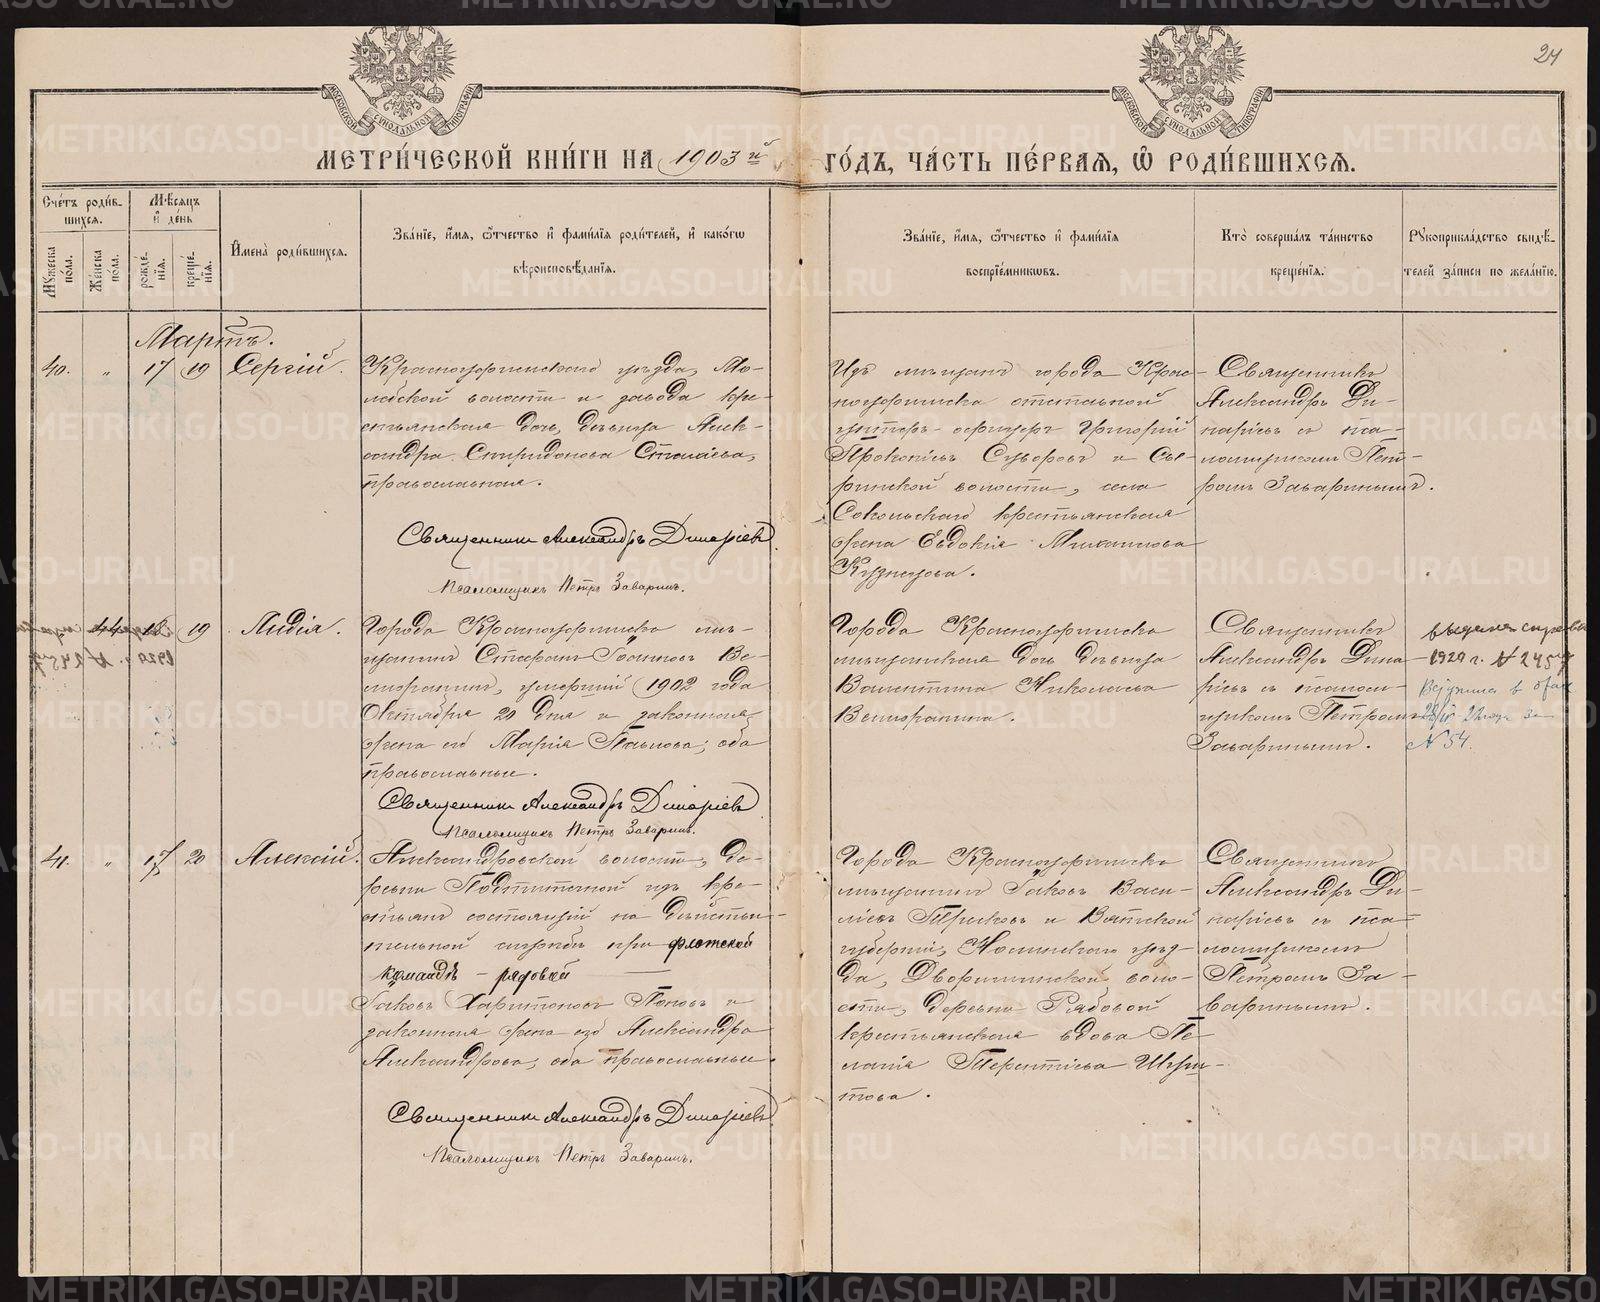 24
МЕТРИ́ЧЕСКОЙ КНИ́ГИ НА 1903 й ГО́ДЪ, ЧА́СТЬ ПЕ́РВАЯ, Ѽ РОДИ́ВШИХСЯ.
Сче́тъ роди́в-
шихся.
Мѣ́сяцъ
и҆ де́нь
Му́жеска
по́ла.
Же́нска
по́ла.
рожде́-
нїѧ.
креще́-
нїѧ.
И҆мена̀ роди́вшихся.
Зва́нїе, и҆́мя, ѻ҆́тчество и҆ фами́лїя роди́телей, и҆ како́гѡ
вѣроисповѣ́данїя.
Зва́нїе, и҆́мя, ѻ҆́тчество и҆ фами́лїя
воспрїе́мниковъ.
Кто̀ соверша́лъ та́инство
креще́нїя.
Рꙋкоприкла́дство свидѣ́-
телей за́писи по жела́нїю.
Мартъ.
40. " 17 19 Сергій.
Красноуфимскаго уѣзда, Мо-
лебской волости и завода кре-
стьянская дочь, дѣвица Алек-
сандра Спиридонова
православная.
Священникъ Александръ Динаріевъ
Псаломщикъ Петръ Заваринъ.
Изъ мѣщанъ города Крас-
ноуфимска отставной
унтеръ-офицеръ Григорій
Прокопьевъ Суворовъ и Сы-
ринской волости, села
Сокольскаго крестьянская
жена Евдокія Михаилова
Кузнецова.
Священникъ
Александръ Ди-
наріевъ съ пса-
ломщикомъ Пет-
ромъ Заваринымъ.
44 18 19 Лидія.
Города Красноуфимска мѣ-
щанинъ Стефанъ Іоанновъ Ве-
умершій 1902 года
Октября 20 дня и законная
жена его Марія Павлова; оба
православные.
Священникъ Александръ Динаріевъ
Псаломщикъ Петръ Заваринъ.
Города Красноуфимска
мѣщанская дочь дѣвица
Валентина Николаева
Священникъ
Александръ Дина-
ріевъ съ псалом-
щикомъ Петромъ
Заваринымъ.
выдана справка
1929 г. № 2457
в
№ 54.
41. " 17 20 Алексій.
Александровской волости, де-
ревни изъ кре-
стьянъ состоящій на дѣйстви-
тельной службѣ при флотской
командѣ - рядовой
Іаковъ Харитоновъ Поповъ и
законная жена его Александра
Александрова, оба православные.
Священникъ Александръ Динаріевъ
Псаломщикъ Петръ Заваринъ.
Города Красноуфимска
мѣщанинъ Іаковъ Васи-
льевъ и Вятской
губерніи, Нолинскаго уѣз-
да, воло-
сти, деревни Рябовой
крестьянская вдова Пе-
лагія Терентьева
Священникъ
Александръ Ди-
наріевъ съ пса-
ломщикомъ
Петромъ За-
вариннымъ.
METRIKI.GASO-URAL.RU